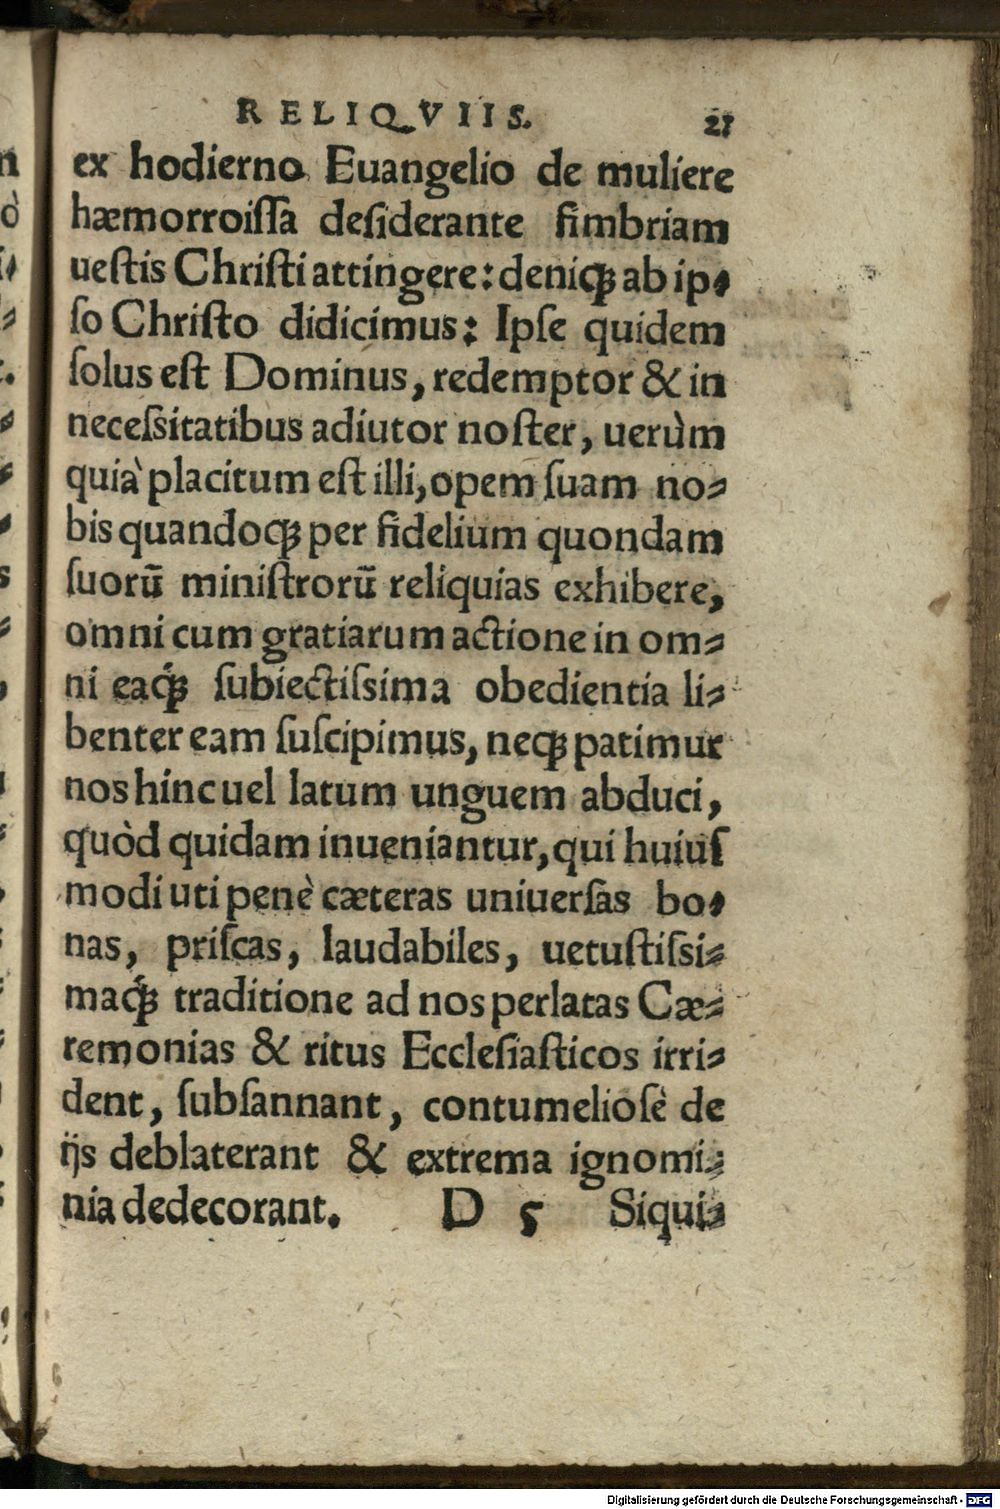 RELIQVIIS. 21
ex hodierno Euangelio de muliere
hæmorroiſſa deſiderante fimbriam
ueſtis Chriſti attingere: deniqꝫ ab ip⸗
ſo Chriſto didicimus: Ipſe quidem
ſolus eſt Dominus, redemptor & in
neceſsitatibus adiutor noſter, uerùm
quià placitum eſt illi, opem ſuam no⸗
bis quandoqꝫ per fidelium quondam
ſuorū miniſtrorū reliquias exhibere,
omni cum gratiarum actione in om⸗
ni eaqꝫ́ ſubiectiſsima obedientia li⸗
benter eam ſuſcipimus, neqꝫ patimur
nos hinc uel latum unguem abduci,
quòd quidam inueniantur, qui huiuſ
modi uti penè cæteras uniuerſas bo⸗
nas, priſcas, laudabiles, uetuſtiſsi⸗
maqꝫ́ traditione ad nos perlatas Cæ⸗
remonias & ritus Eccleſiaſticos irri⸗
dent, ſubſannant, contumelioſè de
ijs deblaterant & extrema ignomi⸗
nia dedecorant. D 5 Siqui⸗
Digitalisierung gefördert durch die Deutsche Forschungsgemeinschaft - DFG